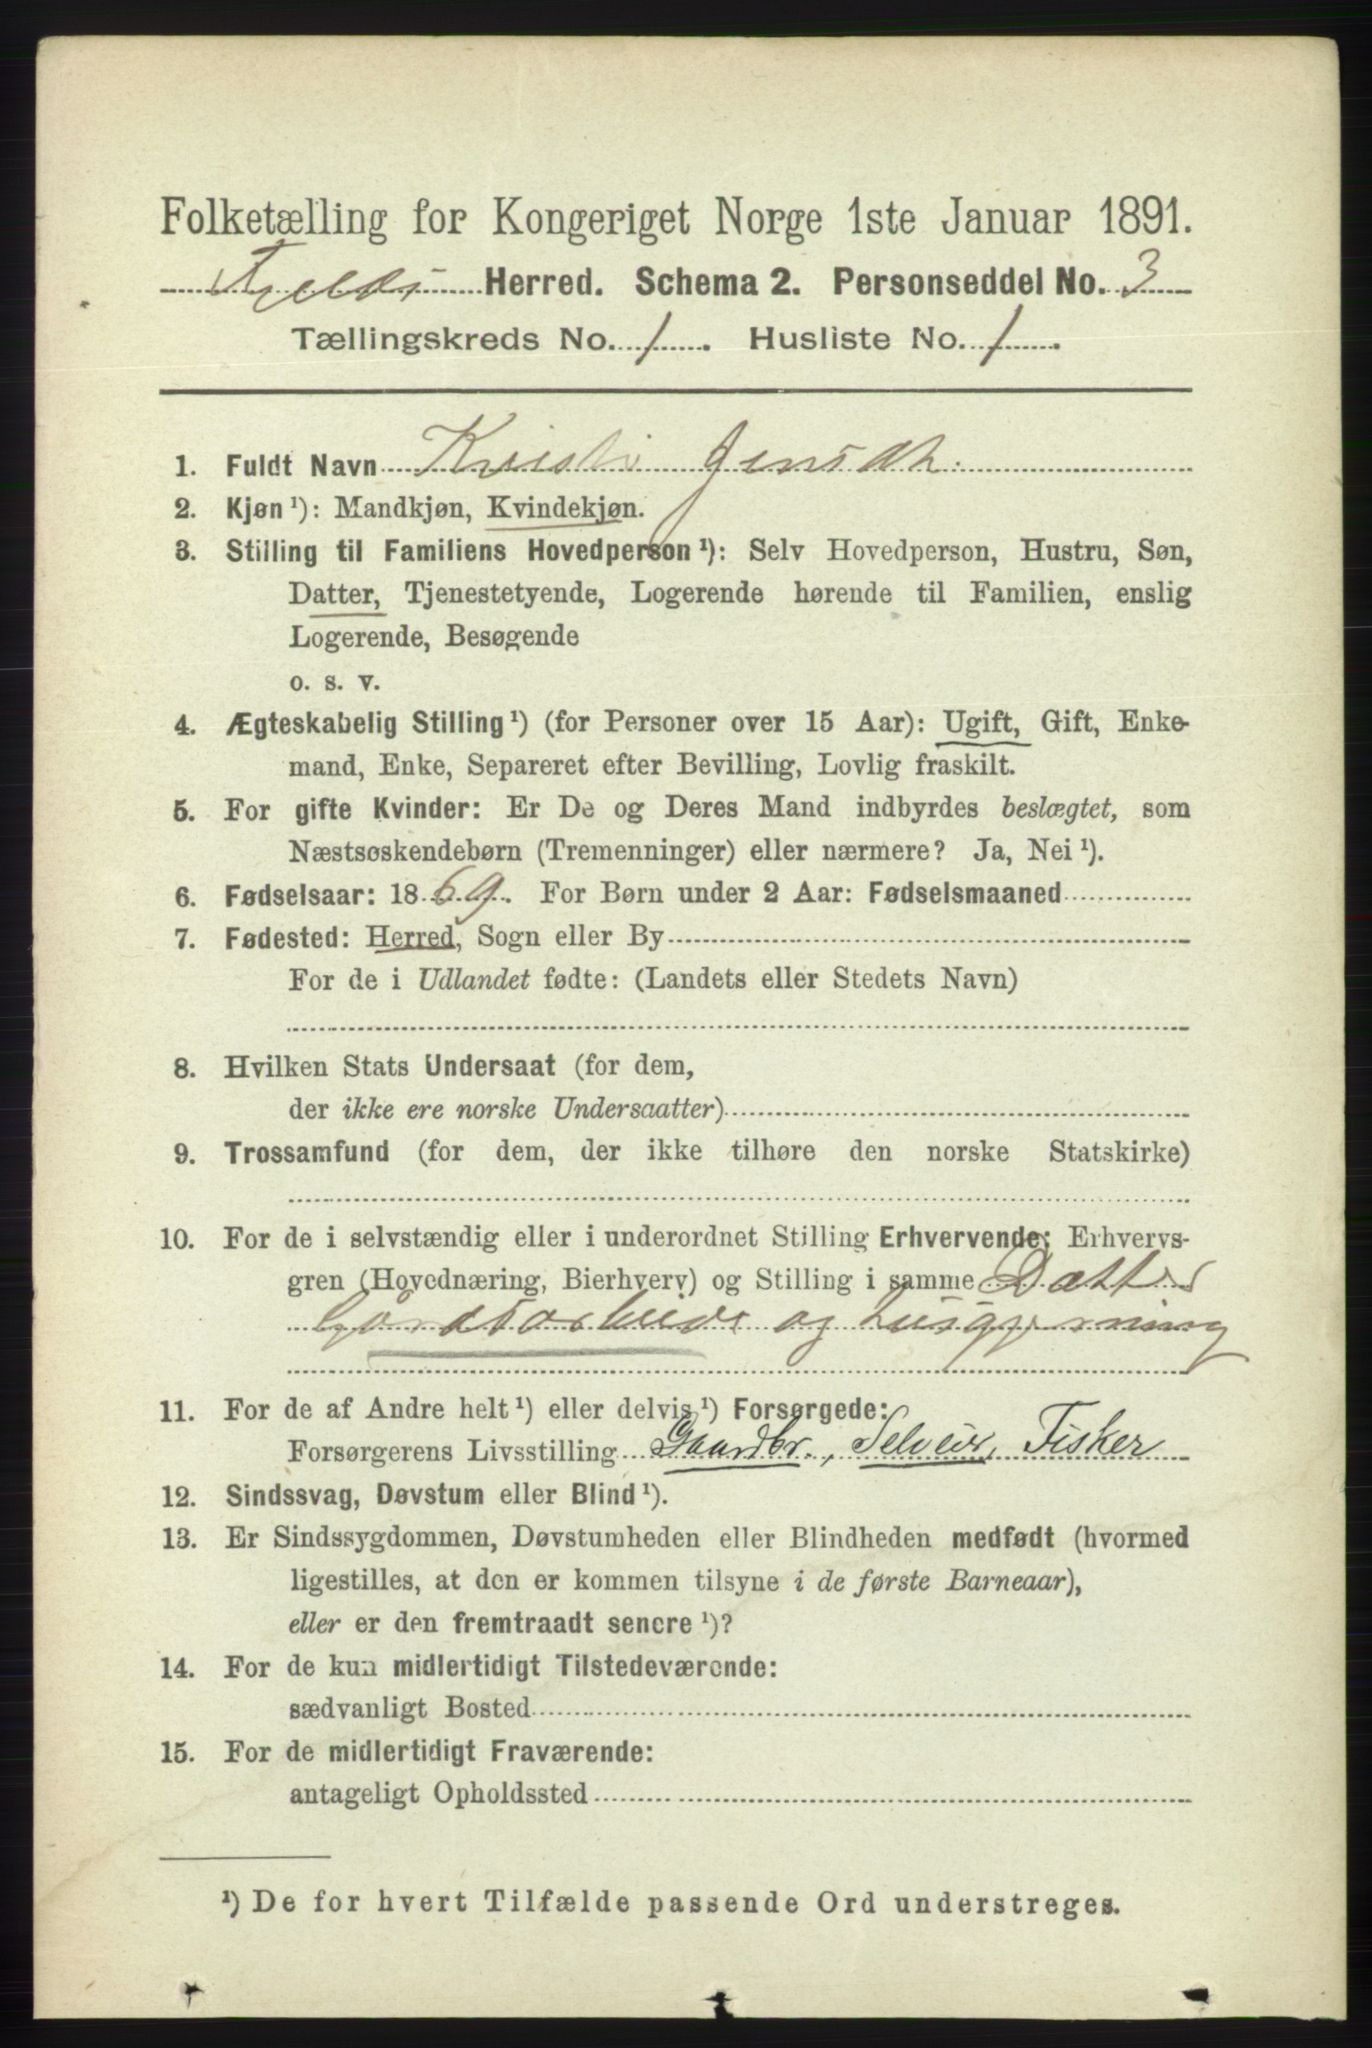 Folketælling for Kongeriget Norge 1ste Januar 1891.
Fjelds Herred. Schema 2. Personseddel No. 3
Tællingskreds No. 1. Husliste No. 1.
1. Fuldt Navn Kristi Jensdt.
2. Kjøn ¹): Mandkjøn, Kvindekjøn.
3. Stilling til Familiens Hovedperson ¹): Selv Hovedperson, Hustru, Søn,
Datter, Tjenestetyende, Logerende hørende til Familien, enslig
Logerende, Besøgende
o. s. v.
4. Ægteskabelig Stilling ¹) (for Personer over 15 Aar): Ugift, Gift, Enke-
mand, Enke, Separeret efter Bevilling, Lovlig fraskilt.
5. For gifte Kvinder: Er De og Deres Mand indbyrdes beslægtet, som
Næstsøskendebørn (Tremenninger) eller nærmere? Ja, Nei ¹).
6. Fødselsaar: 1869. For Børn under 2 Aar: Fødselsmaaned
7. Fødested: Herred, Sogn eller By
For de i Udlandet fødte: (Landets eller Stedets Navn)
8. Hvilken Stats Undersaat (for dem,
der ikke ere norske Undersaatter)
9. Trossamfund (for dem, der ikke tilhøre den norske Statskirke)
10. For de i selvstændig eller i underordnet Stilling Erhvervende: Erhvervs-
gren (Hovednæring, Bierhverv) og Stilling i samme Datter
Gårdsarbeide og husgjerning
11. For de af Andre helt ¹) eller delvis ¹) Forsørgede:
Forsørgerens Livsstilling Gaardbr., Selveier, Fisker
12. Sindssvag, Døvstum eller Blind ¹).
13. Er Sindssygdommen, Døvstumheden eller Blindheden medfødt (hvormed
ligestilles, at den er kommen tilsyne i de første Barneaar),
eller er den fremtraadt senere ¹)?
14. For de kun midlertidigt Tilstedeværende:
sædvanligt Bosted
15. For de midlertidigt Fraværende:
antageligt Opholdssted
¹) De for hvert Tilfælde passende Ord understreges.